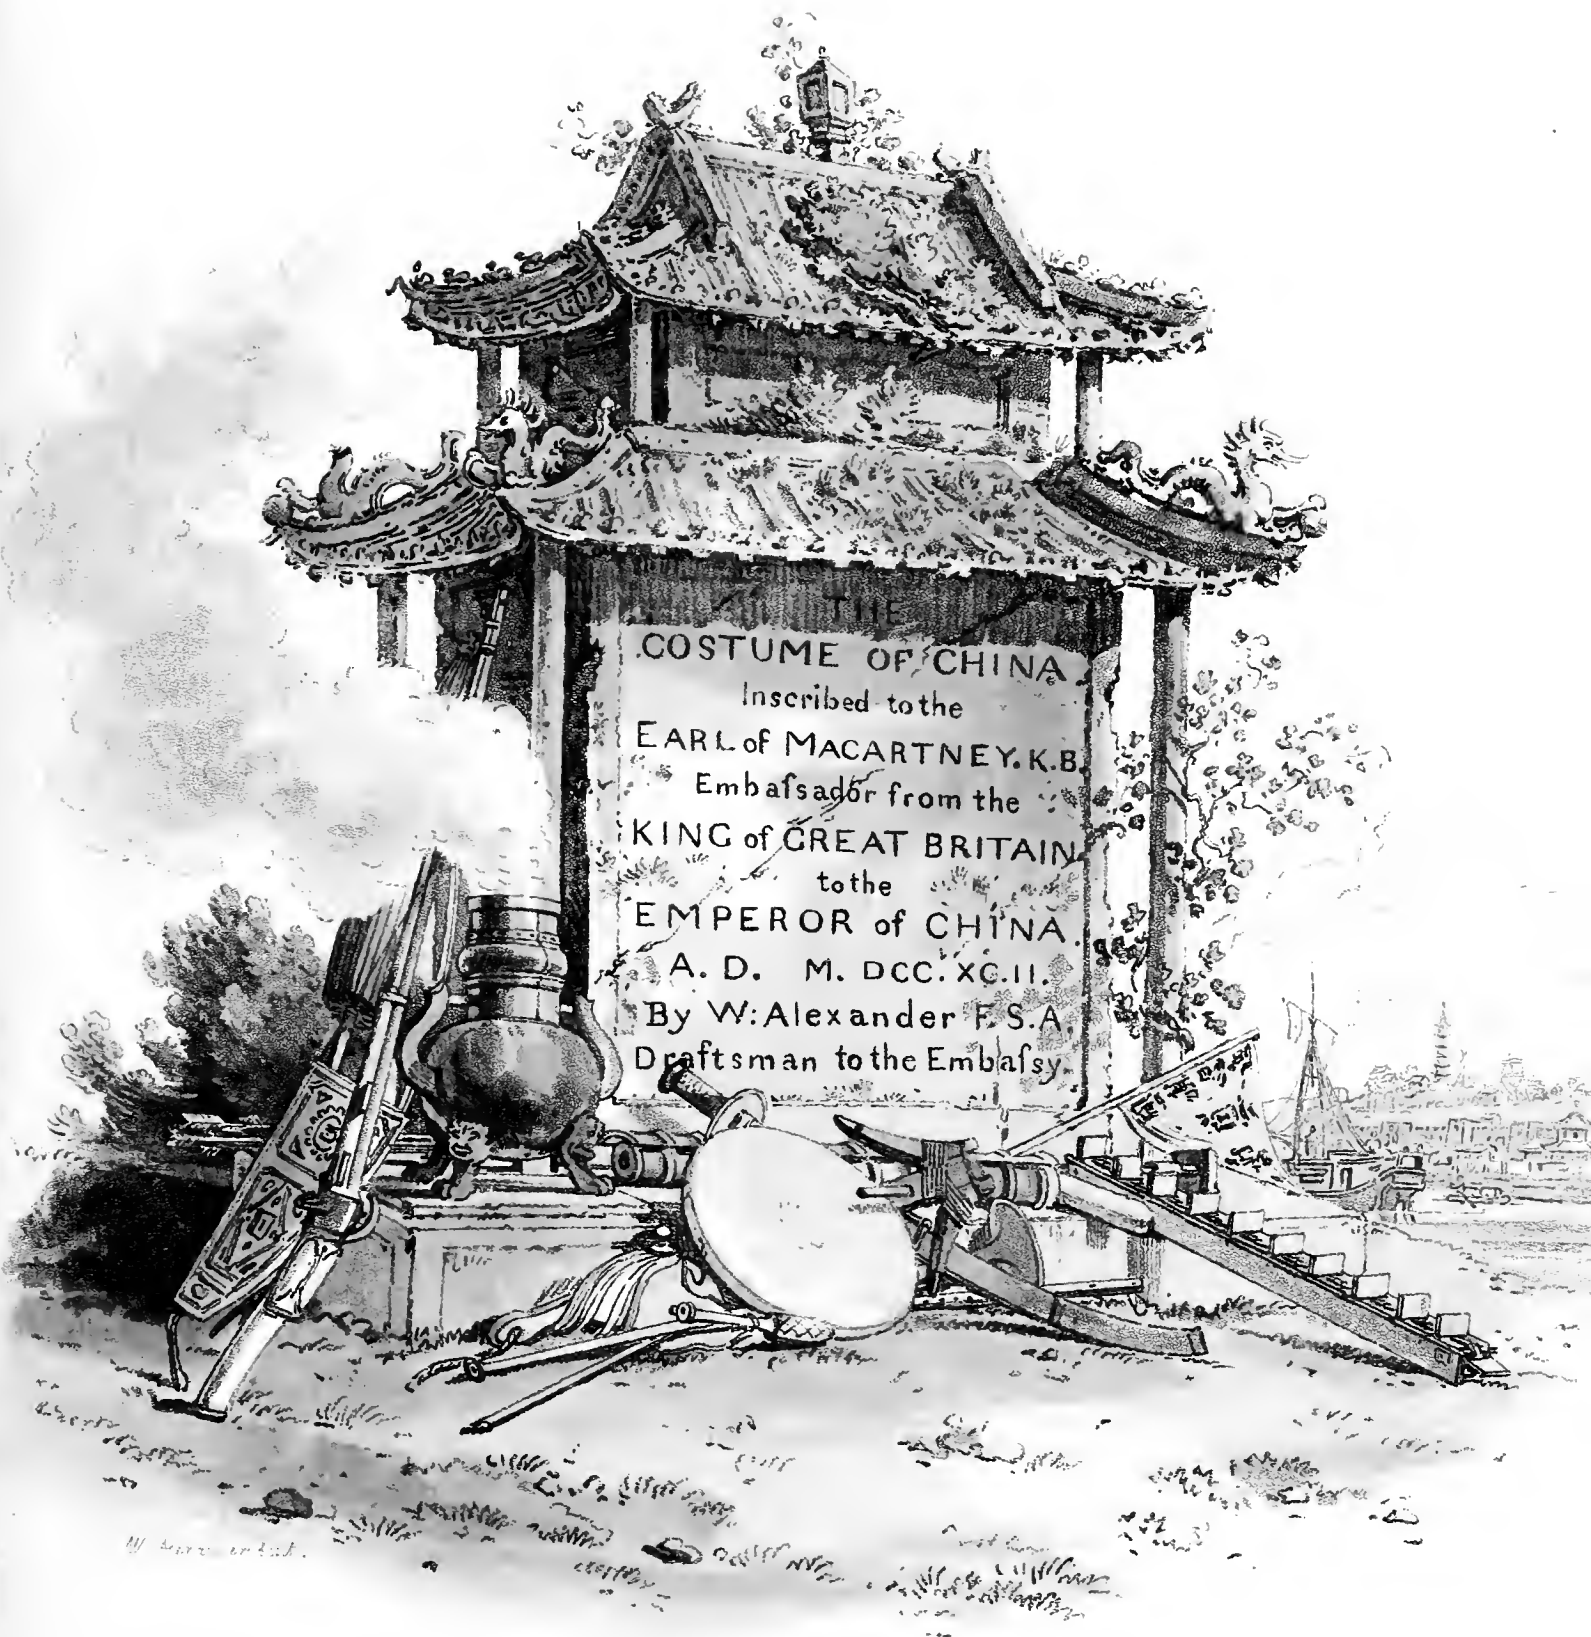 THE
COSTUME OF CHINA.
Inscribed to the
EARL of MACARTNEY. K.B.
Embaſsador from the
KING of GREAT BRITAIN.
to the
EMPEROR of CHINA.
A. D. M. DCC. XC.II.
By W: Alexander F. S. A.
Draftsman to the Embaſsy.